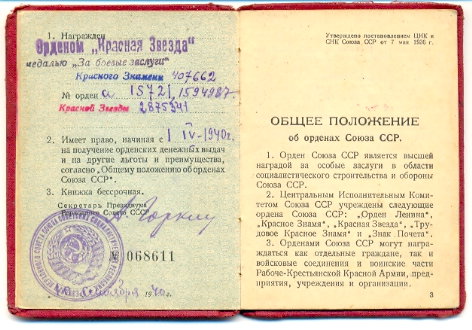 1. Награжден
Орденом „Красная Звезда"
медалью „За боевые заслуги"
Красного Знамени 407662
№ орден а 15721, 1594987.
Красной Звезды 2875341
2. Имеет право, начиная с 1 IV-1940г.
на получение орденских денежных выдач
и на другие льготы и преимущества,
согласно „Общему положению об орденах
Союза ССР".
3. Книжка бессрочная.
Секретарь Президиума
Союза ССР
М. Горкин
№ 068611
Утверждено постановлением ЦИК и
СНК Союза ССР от 7 мая 1936 г.
ОБЩЕЕ ПОЛОЖЕНИЕ
об орденах Союза ССР.
1. Орден Союза ССР является высшей
наградой за особые заслуги в области
социалистического строительства и обороны
Союза ССР.
2. Центральным Исполнительным Комитетом
Союза ССР учреждены следующие
ордена Союза ССР: „Орден Ленина",
„Красное Знамя", „Красная Звезда", „Трудовое
Красное Знамя" и „Знак Почета".
3. Орденами Союза ССР могут награждаться
как отдельные граждане, так и
войсковые соединения и воинские части
Рабоче-Крестьянской Красной Армии, предприятия,
учреждения и организации.
3